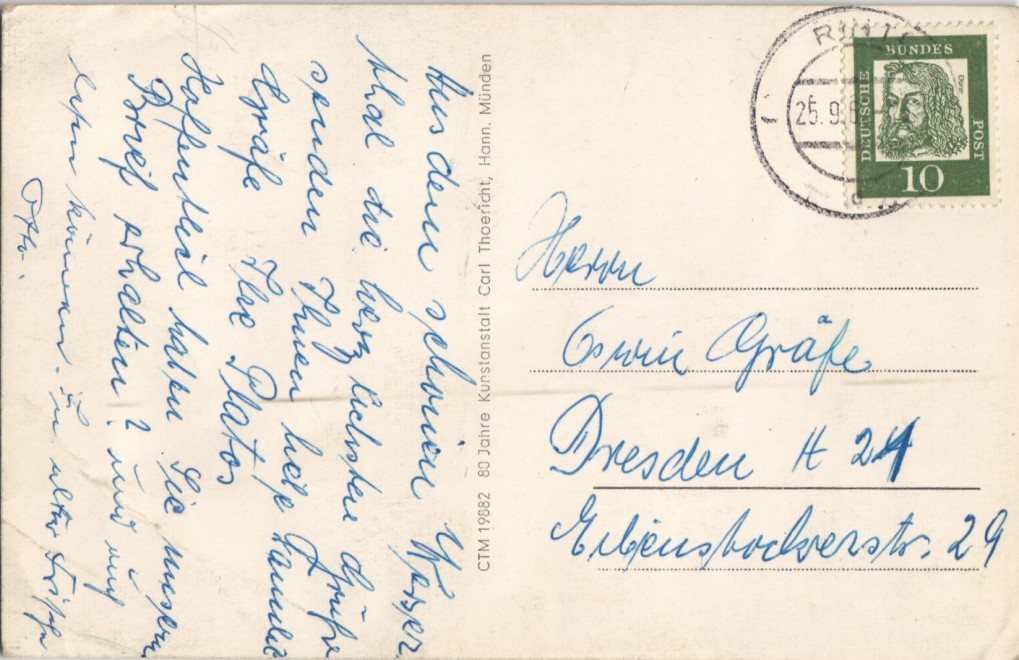 Aus dem schönen Weser
thal die herzlichsten Grüße
senden Ihnen liebe Familie
Gräfe Ihre Platos
Hoffentlich haben Sie unsern
Brief erhalten? und auch
lesen können. In alter Frische
Otto.
CTM 19882 80 Jahre Kunstanstalt Carl Thoericht, Hann. Münden
25.9.
DEUTSCHE
BUNDES
POST
Dürer
10
Herrn
Erwin Gräfe
Dresden A 24
Eibenstockerstr. 29